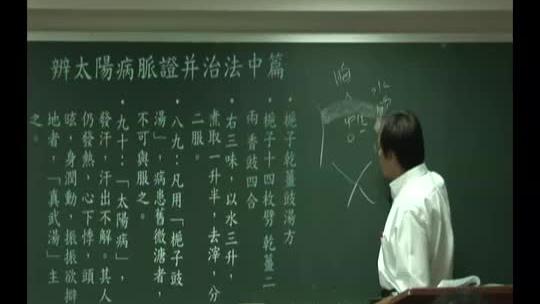 辨太陽病脈證并治法中篇
• 梔子乾薑豉湯方
• 梔子十四枚劈 乾薑二
兩 香豉四合
• 右三味，以水三升，
煮取一升半，去滓，分
二服。
• 八九：凡用「梔子豉
湯」，病患舊微溏者，
不可與服之。
• 九十：「太陽病」，
發汗，汗出不解。其人
仍發熱、心下悸，頭
眩，身潤動，振振欲擗
地者，「真武湯」主
之。
胸
中